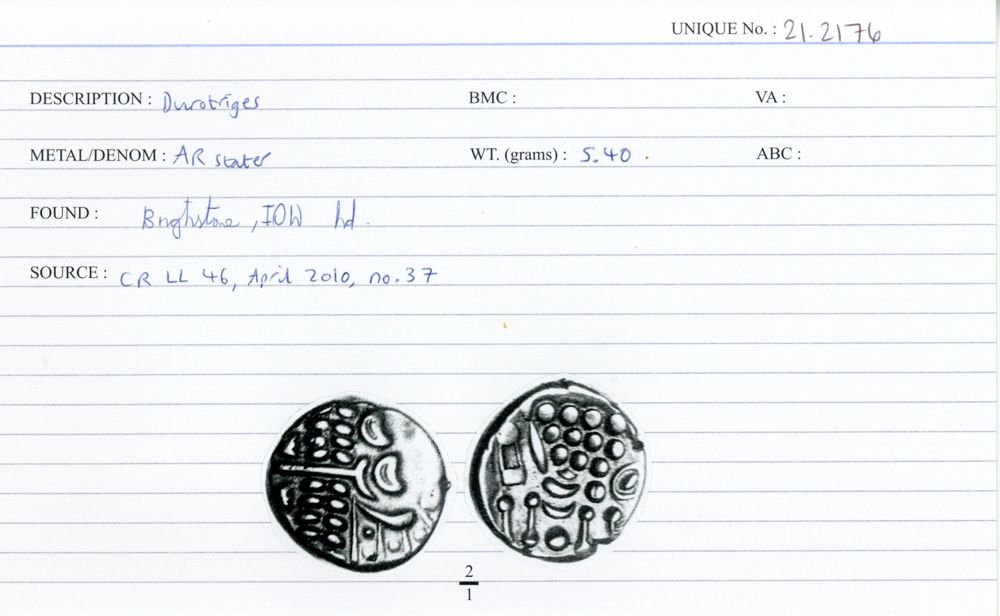 UNIQUE No. : 21.2176
DESCRIPTION : Durotriges BMC : VA :
METAL/DENOM : AR stater WT. (grams) : 5.40 . ABC :
FOUND : Brighstone, IOW hd.
SOURCE : CR LL 46, April 2010, no.37
2
1